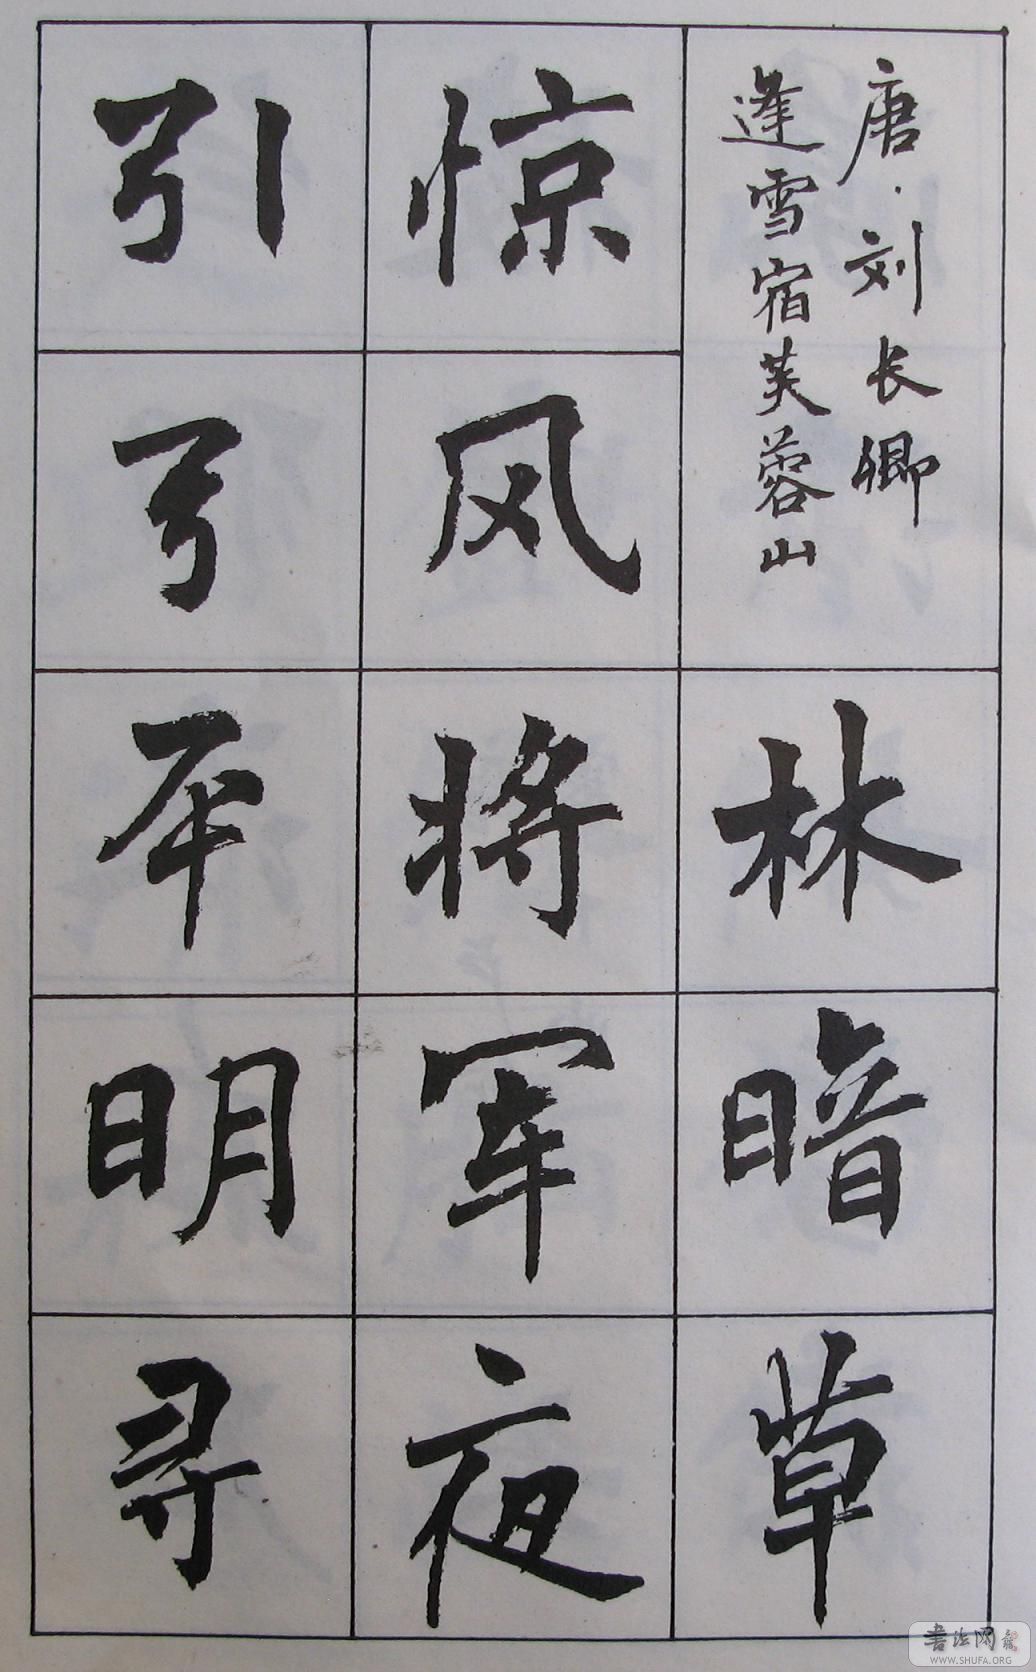 唐·刘长卿
逢雪宿芙蓉山
林暗草
惊风将军夜
引弓平明寻
书法网
WWW.SHUFA.ORG